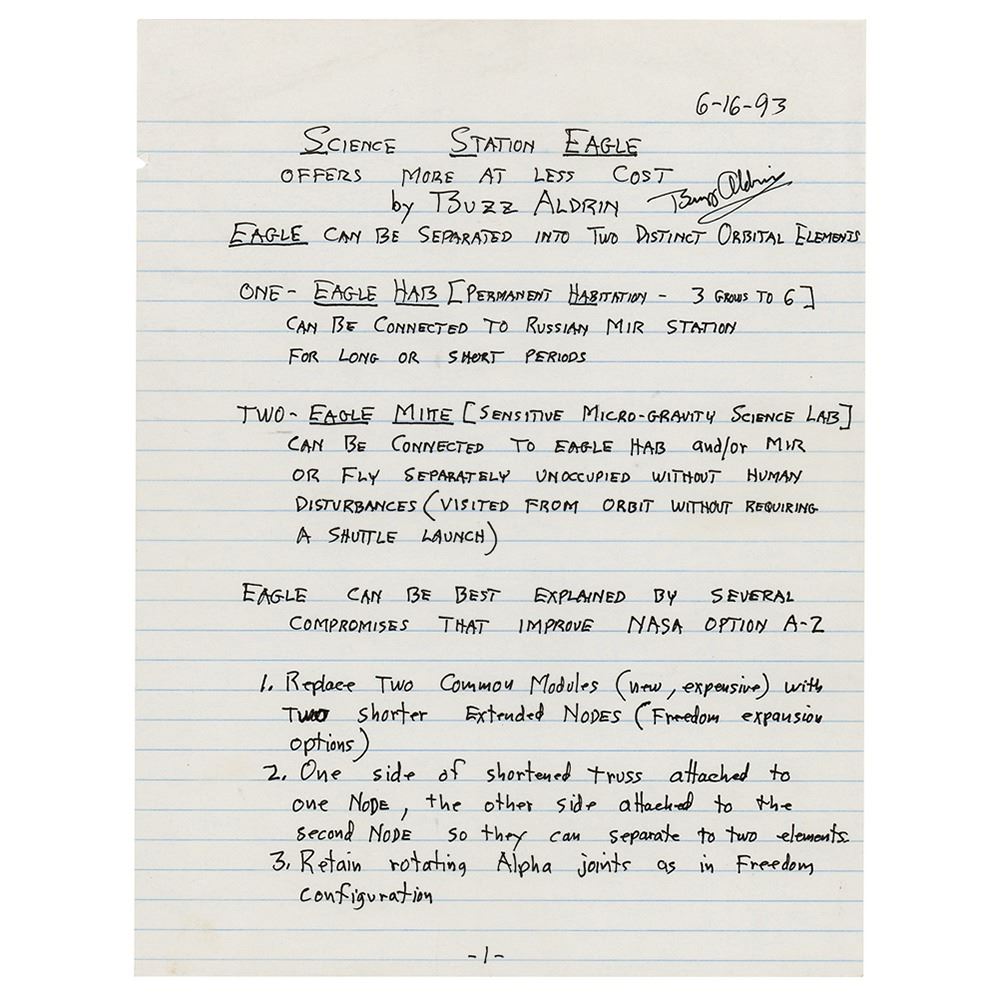 6-16-93
SCIENCE STATION EAGLE
OFFERS MORE AT LESS COST
by BUZZ ALDRIN Buzz Aldrin
EAGLE CAN BE SEPARATED INTO TWO DISTINCT ORBITAL ELEMENTS
ONE - EAGLE HAB [PERMANENT HABITATION - 3 GROWS TO 6]
CAN BE CONNECTED TO RUSSIAN MIR STATION
FOR LONG OR SHORT PERIODS
TWO - EAGLE MITE [SENSITIVE MICRO-GRAVITY SCIENCE LAB]
CAN BE CONNECTED TO EAGLE HAB and/or MIR
OR FLY SEPARATELY UNOCCUPIED WITHOUT HUMAN
DISTURBANCES (VISITED FROM ORBIT WITHOUT REQUIRING
A SHUTTLE LAUNCH)
EAGLE CAN BE BEST EXPLAINED BY SEVERAL
COMPROMISES THAT IMPROVE NASA OPTION A-2
1. Replace Two Common Modules (new, expensive) with
Two shorter Extended NODES (Freedom expansion
options)
2. One side of shortened truss attached to
one NODE, the other side attached to the
second NODE so they can separate to two elements.
3. Retain rotating Alpha joints as in Freedom
configuration
-1-